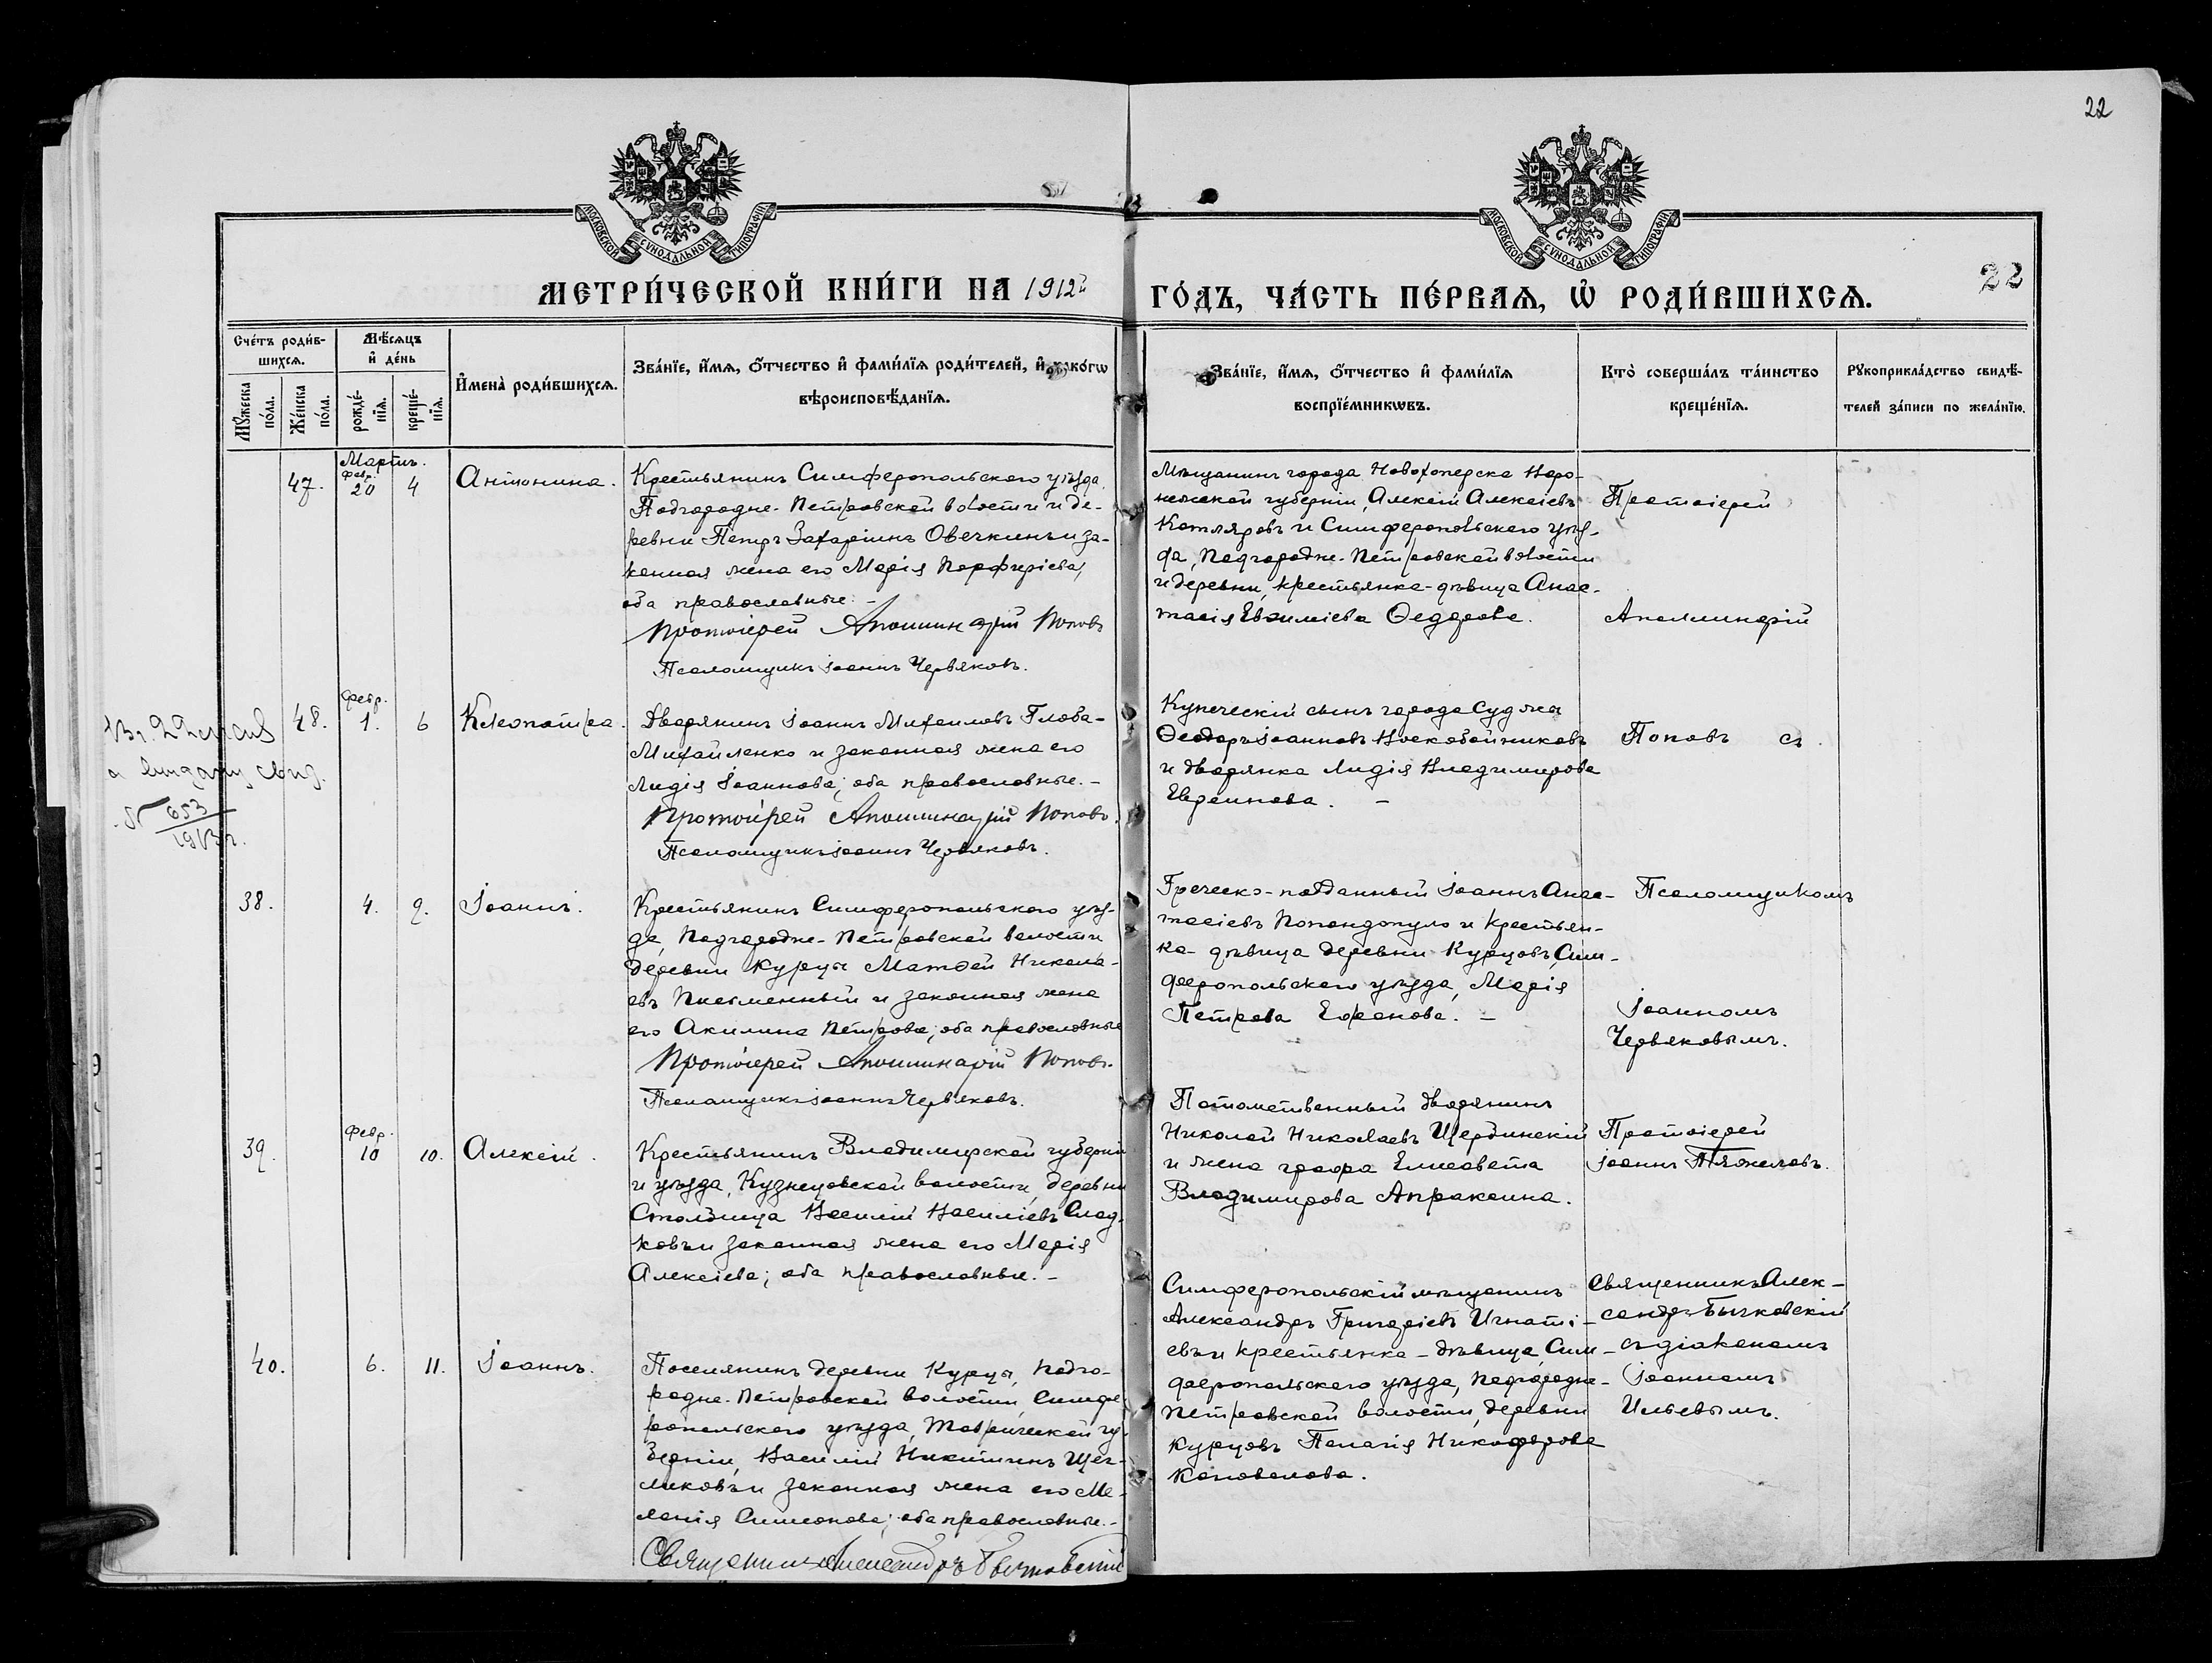 22
МОСКОВСКОЙ СѴНОДАЛЬНОЙ ТИПОГРАФІИ
МОСКОВСКОЙ СѴНОДАЛЬНОЙ ТИПОГРАФІИ
МЕТРИ́ЧЕСКОЙ КНИ́ГИ НА 1912й
ГО́ДЪ, ЧА́СТЬ ПЕ́РВАѦ, Ѡ҆ РОДИ́ВШИХСѦ.
22
Сче́тъ роди́в-
шихсѧ.
Мꙋ́жеска по́ла.
Же́нска по́ла.
Мѣ́сѧцъ
и҆ де́нь
рожде́-
нїѧ.
креще́-
нїѧ.
И҆мена̀ роди́вшихсѧ.
Зва́нїе, и҆́мѧ, ѻ҆́тчество и҆ фами́лїѧ роди́телей, и҆ како́гѡ
вѣроисповѣ́данїѧ.
Зва́нїе, и҆́мѧ, ѻ҆́тчество и҆ фами́лїѧ
воспрїе́мникѡвъ.
Кто̀ соверша́лъ та́инство
креще́нїѧ.
Рꙋкоприкла́дство свидѣ́-
телей за́писи по жела́нїю.
Мартъ.
47.
Февр.
20
4
Антонина.
Крестьянинъ Симферопольскаго уѣзда,
Подгородне-Петровской волости и де-
ревни Петръ Захаріинъ Овечкинъ и за-
конная жена его Марія Порфиріева,
оба православные. –
Протоіерей Аполлинарій Поповъ
Псаломщикъ Іоаннъ Червяковъ.
Мѣщанинъ города Новохоперска Воро-
нежской губерніи, Алексій Алексіевъ
Котляровъ и Симферопольскаго уѣз-
да, Подгородне-Петровской волости
и деревни, крестьянка-дѣвица Анас-
тасія Евѳиміева Ѳедорова.
Протоіерей
Аполлинарій
48.
Февр.
1.
6
Клеопатра.
Дворянинъ Іоаннъ Михаиловъ Глоба-
Михайленко и законная жена его
Лидія Іоаннова; оба православные. –
Протоіерей Аполлинарій Поповъ.
Псаломщикъ Іоаннъ Червяковъ.
Купеческій сынъ города Суджа
Ѳеодоръ Іоанновъ Воскобойниковъ
и дворянка Лидія Владимирова
Евреинова. –
Поповъ съ
выдачу свид.
№ 653
1913 г.
38.
4.
9.
Іоаннъ.
Крестьянинъ Симферопольскаго уѣз-
да, Подгородне-Петровской волости
деревни Курцы Матѳей Никола-
евъ Письменный и законная жена
его Акилина Петрова; оба православные
Протоіерей Аполлинарій Поповъ.
Псаломщикъ Іоаннъ Червяковъ.
Греческо-подданный Іоаннъ Анас-
тасіевъ Попондопуло и крестьян-
ка-дѣвица деревни Курцовъ, Сим-
феропольскаго уѣзда, Марія
Петрова Ефанова. –
Псаломщикомъ
Іоанномъ
Червяковымъ.
39.
Февр.
10
10.
Алексій.
Крестьянинъ Владимирской губерніи
и уѣзда, Кузнецовской волости, деревни
Столбища Василій Василіевъ Слад-
ковъ и законная жена его Марія
Алексіева; оба православные. –
Потомственный дворянинъ
Николай Николаевъ Щербинскій
и жена графа Елисавета
Владимирова Апраксина.
Протоіерей
Іоаннъ Тяжеловъ.
40.
6.
11.
Іоаннъ.
Поселянинъ деревни Курцы, Подго-
родне-Петровской волости, Симфе-
ропольскаго уѣзда, Таврической гу-
берніи, Василій Никитинъ Щег-
ликовъ и законная жена его Ме-
ланія Симеонова; оба православные. –
Священникъ Александръ Бычковскій
Симферопольскій мѣщанинъ
Александръ Григоріевъ Игнаті-
евъ и крестьянка-дѣвица, Сим-
феропольскаго уѣзда, Подгородне-
Петровской волости, деревни
Курцовъ Пелагія Никифорова
Коновалова.
Священникъ Алек-
сандръ Бычковскій
съ діакономъ
Іоанномъ
Ильевымъ.